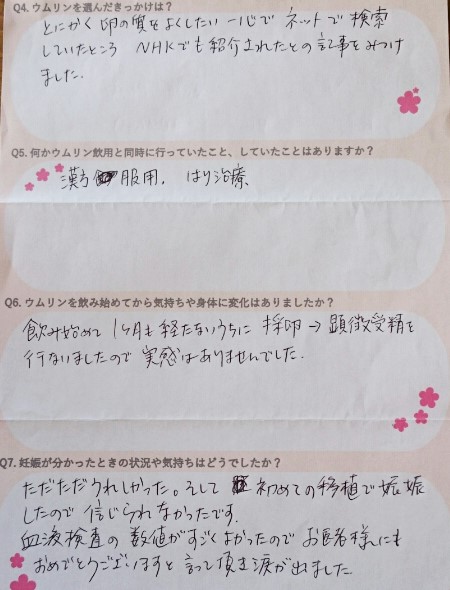 Q4. ウムリンを選んだきっかけは？
とにかく卵の質をよくしたい一心でネットで検索
していたところ NHKでも紹介されたとの記事をみつけ
ました.
Q5. 何かウムリン飲用と同時に行っていたこと、していたことはありますか？
漢方 服用. はり治療、
Q6. ウムリンを飲み始めてから気持ちや身体に変化はありましたか？
飲み始めて 1ヶ月も経たないうちに 採卵→顕微受精を
行ないましたので 実感はありませんでした.
Q7. 妊娠が分かったときの状況や気持ちはどうでしたか？
ただただうれしかった。そして 初めての移植で妊娠
したので 信じられなかったです.
血液検査の 数値がすごくよかったので お医者様にも
おめでとうございますと 言って頂き涙が出ました.